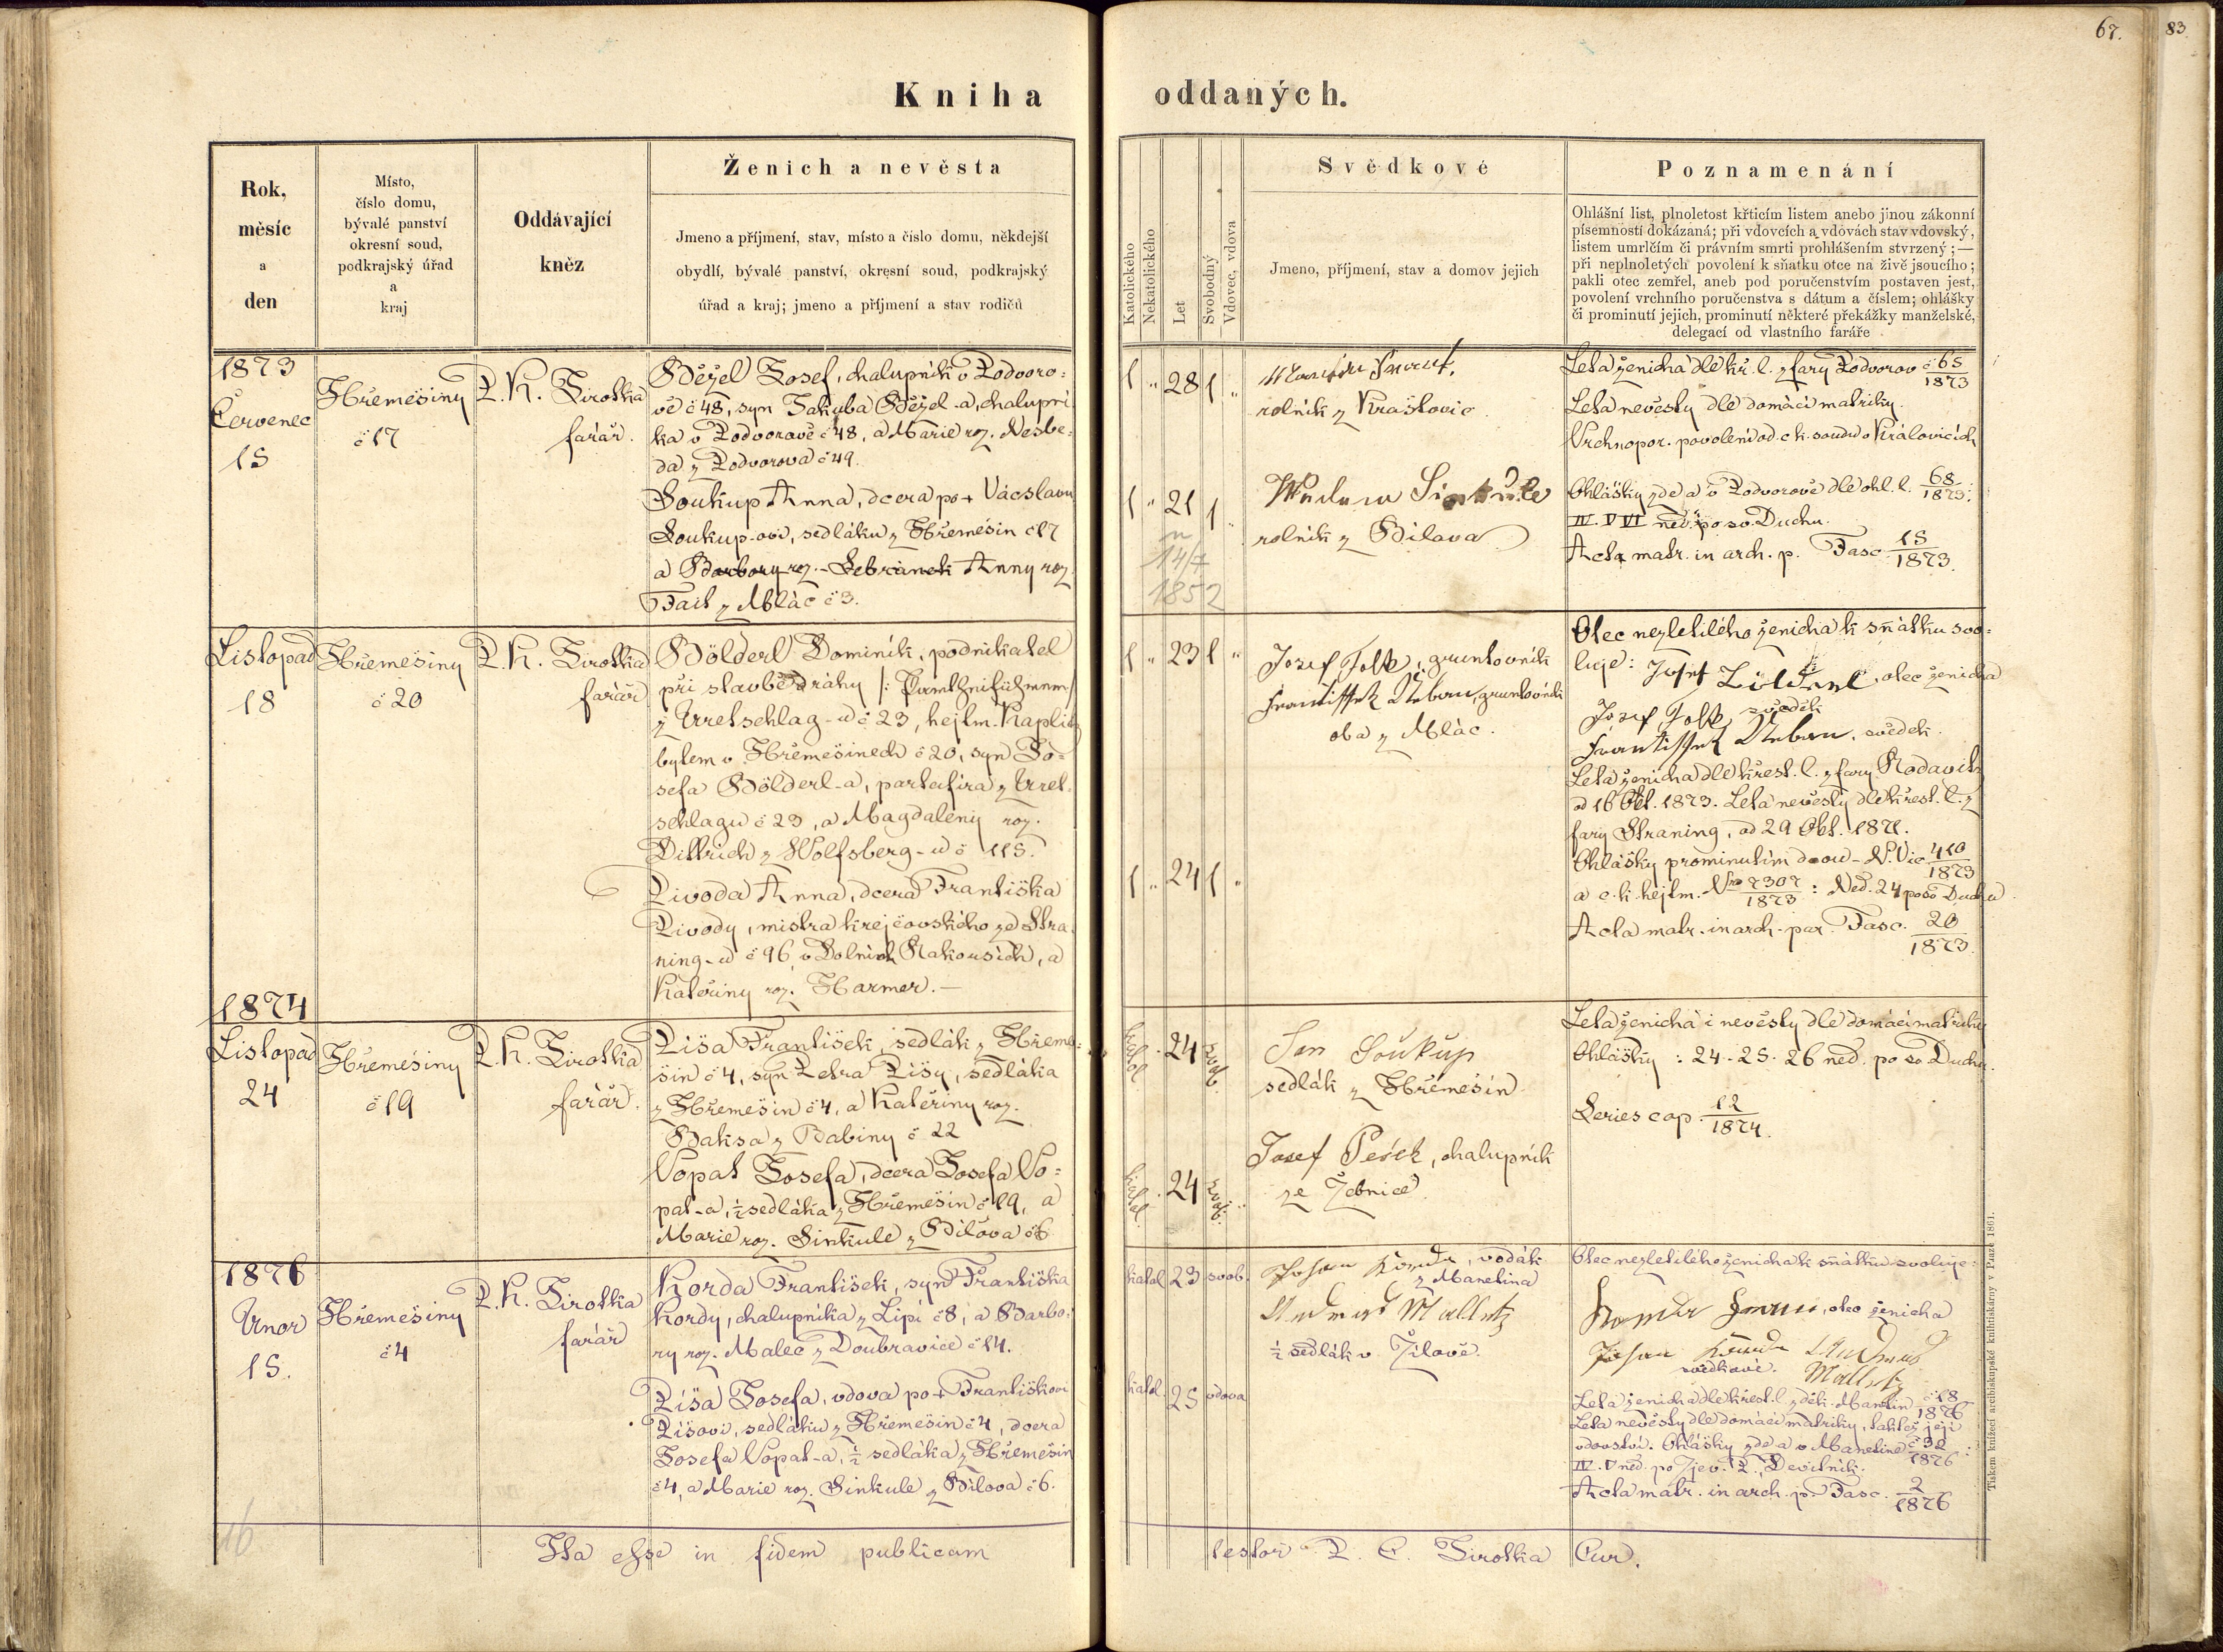 67.
83.
Kniha oddaných.
Rok,
měsíc
a
den
Místo,
číslo domu,
bývalé panství
okresní soud,
podkrajský úřad
a
kraj
Oddávající
kněz
Ženich a nevěsta
Jmeno a příjmení, stav, místo a číslo domu, někdejší
obydlí, bývalé panství, okresní soud, podkrajský
úřad a kraj; jmeno a příjmení a stav rodičů
Katolického
Nekatolického
Let
Svobodný
Vdovec, vdova
Svědkové
Jmeno, příjmení, stav a domov jejich
Poznamenání
Ohlášní list, plnoletost křticím listem anebo jinou zákonní
písemností dokázaná; při vdovcích a vdovách stav vdovský,
listem umrlčím či právním smrti prohlášením stvrzený; —
při neplnoletých povolení k sňatku otce na živě jsoucího;
pakli otec zemřel, aneb pod poručenstvím postaven jest,
povolení vrchního poručenstva s dátum a číslem; ohlášky
či prominutí jejich, prominutí některé překážky manželské,
delegací od vlastního faráře
1873
Červenec
15
Hřemešiny
č 17
P. K. Sirotka
farář.
Běžel Josef, chalupník v Podvoro-
vě č 48, syn Jakuba Běžel-a, chalupní
ka v Podvorově č 48, a Marie roz. Nesbe-
da z Podvorova č 49.
Soukup Anna, dcera po + Václavu
Soukup-ovi, sedláku z Hřemešin č 17
a Barbory roz. Anny roz.
Fait z Mláč č 3.
1 " 28 1 "
rolník z Kraslovic
1 " 21 1 "
n
14/7
1852
rolník z Bílova
Leta ženicha dle kř. l. z fary Podvorov č 65/1873
Leta nevěsty dle domácí matriky.
Vrchnopor. povolení od c. k. soudu v Královicích
Ohlášky zde a v Podvorově dle ohl. l. 68/1873:
IV. V VI ned. po sv. Duchu.
Acta matr. in arch. p. Fasc. 15/1873.
Listopad
18
Hřemešiny
č 20
P. K. Sirotka
farář
Bölderl Dominik, podnikatel
při stavbě dráhy
z Urretschlag-u č 23, hejtm. Kaplitz
bytem v Hřemešinech č 20, syn Jo-
sefa Bölderl-a, partafíra z Urret-
schlagu č 23, a Magdaleny roz.
Dittrich z Wolfsberg-u č 115.
Pivoda Anna, dcera Františka
Pivody, mistra krejčovského ze Stra-
ning-u č 96, v Dolních Rakousích, a
Kateřiny roz. Harmer. —
1 " 23 1 "
Josef Tolk, gruntovník
Frantissek Urban, gruntovník
oba z Mláč.
1 " 24 1 "
Otec nezletilého ženicha k sňatku svo-
luje: Josef , otec ženicha
Josef Tolk svědek
Frantissek Urban, svědek.
Leta ženicha dle křest. l. z fary
od 16 Okt. 1873. Leta nevěsty dle křest. l. z
fary Straning, od 29 Okt. 1871.
Ohlášky prominutím dvou - N. Vic 410/1873
a c. k. hejtm. Nro 7307/1873: Ned. 24 po sv Duchu.
Acta matr. in arch. par. Fasc. 20/1873.
1874
Listopad
24
Hřemešiny
č 19
P. K. Sirotka
farář.
Píša František, sedlák z Hřeme-
šin č 4, syn Petra Píšy, sedláka
z Hřemešin č 4, a Kateřiny roz.
Baksa z Babiny č 22
Vopat Josefa, dcera Josefa Vo-
pat-a, ½ sedláka z Hřemešin č 19, a
Marie roz. Sinkule z Bílova č 6
katol. 24 svob.
Jan Soukup
sedlák z Hřemešin
Josef Pešek, chalupník
ze Žebnice
katol. 24 svob.
Leta ženicha i nevěsty dle domácí matriky
Ohlášky: 24. 25. 26 ned. po sv Duchu.
Series cop. 12/1874.
1876
Únor
15.
Hřemešiny
č 4
P. K. Sirotka
farář
Korda František, syn Františka
Kordy, chalupníka z Lipí č 8, a Barbo-
ry roz. Malec z Doubravice č 14.
Píša Josefa, vdova po + Františkovi
Píšovi, sedláku z Hřemešin č 4, dcera
Josefa Vopat-a, ½ sedláka z Hřemešin
č 4, a Marie roz. Sinkule z Bílova č 6.
katol. 23 svob.
Johan Korda, vodák
z Manetína
Malletz
½ sedlák v Žilově.
katol. 25 vdova
Otec nezletilého ženicha k sňatku svoluje:
, otec ženicha
Johan Korda
svědkové. Malletz
Leta ženicha dle křest. l. z děk. Manetín č 18/1876
Leta nevěsty dle domácí matriky, taktéž její
vdovství. Ohlášky zde a v Manetíně č 32/1876:
IV. V ned. po Zjev. P., Devítník.
Acta matr. in arch. p. Fasc. 2/1876
16
Ita esse in fidem publicam
testor P. C. Sirotka Cur.
Tiskem knížecí arcibiskupské knihtiskárny v Praze 1861.